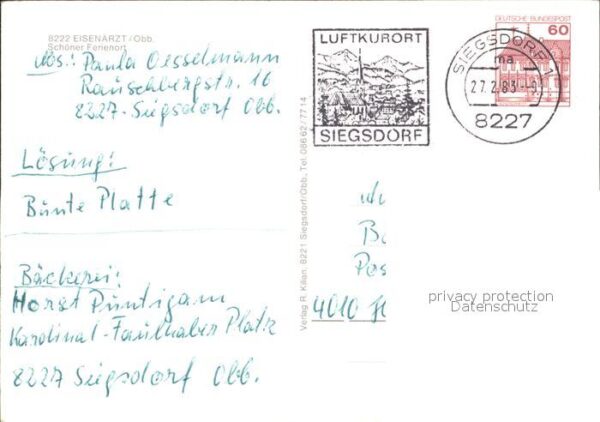 8222 EISENARZT/Obb.
Schöner Ferienort
Abs.: Paula Oesselmann
Rauschbergstr. 16
8227-Siegsdorf Obb.
Lösung:
Bunte Platte
Bäckerei:
Horst Puntigam
Kardinal-Faulhaber Platz
8227 Siegsdorf Obb.
Verlag R. Kilian, 8221 Siegsdorf/Obb. Tel. 086 62 / 77 14
LUFTKURORT
SIEGSDORF
SIEGSDORF 1
ma
27.2.83-9
8227
DEUTSCHE BUNDESPOST
60
Pos
4010
privacy protection
Datenschutz